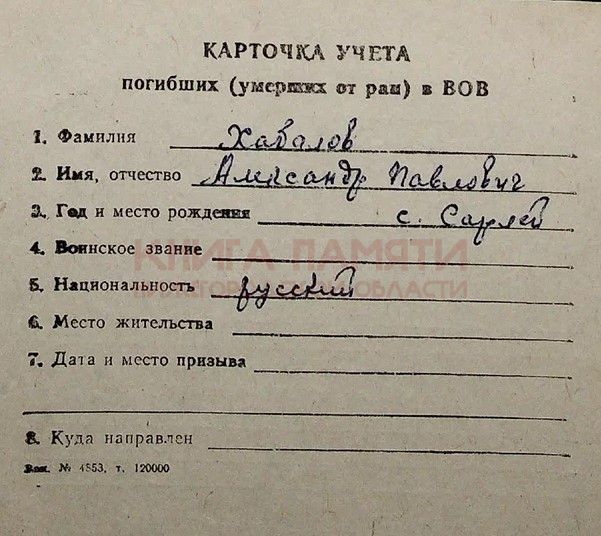 КАРТОЧКА УЧЕТА
погибших (умерших от ран) в ВОВ
1. Фамилия Хабалов
2. Имя, отчество Александр Павлович
3. Год и место рождения с. Сарлей
4. Воинское звание
КНИГА ПАМЯТИ
5. Национальность русский
ОБЛАСТИ
6. Место жительства
7. Дата и место призыва
8. Куда направлен
Зак. № 4853, т. 120000